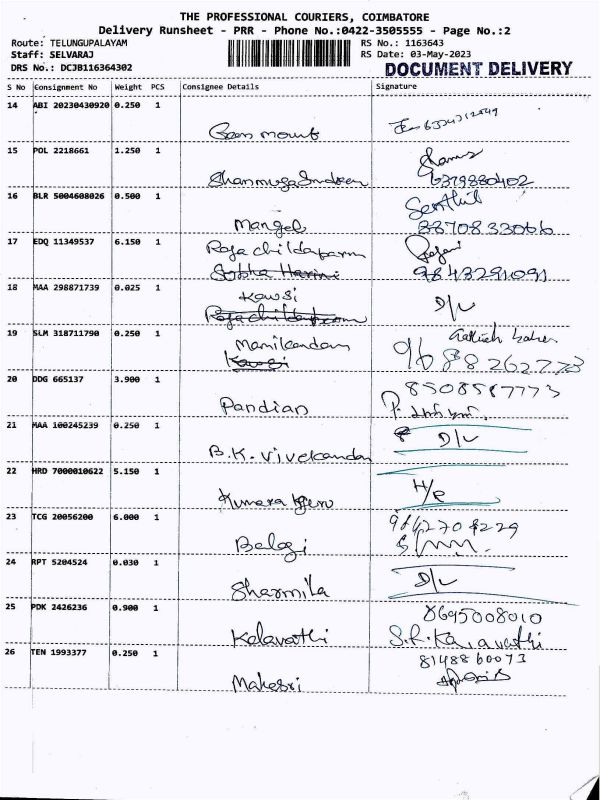 THE PROFESSIONAL COURIERS, COIMBATORE
Delivery Runsheet - PRR - Phone No.:0422-3505555 - Page No.:2
Route: TELUNGUPALAYAM RS No.: 1163643
Staff: SELVARAJ RS Date: 03-May-2023
DRS No.: DCJB116364302 DOCUMENT DELIVERY
S No Consignment No Weight PCS Consignee Details Signature
14 ABI 20230430920 0.250 1
15 POL 2218661 1.250 1
6379880402
16 BLR 5004608026 0.500 1 Senthil
Mangel 8870833066
17 EDQ 11349537 6.150 1 Rajachildaparm Rajani
Sobha Harini 9843291091
18 MAA 298871739 0.025 1 Kawsi D/L
Rajachildaparm
19 SLM 318711790 0.250 1 Manikandan
Kawsi 9688262773
20 DDG 665137 3.900 1 8508587773
Pandian
21 MAA 100245239 0.250 1 D/L
B.K. Vivekandan
22 HRD 7000010622 5.150 1 H/R
23 TCG 20056200 6.000 1
Balaji
24 RPT 5204524 0.030 1 D/L
Sharmila
25 PDK 2426236 0.900 1 8695008010
Kalavathi S.R.Kalavathi
26 TEN 1993377 0.250 1 8148860073
Mahesri